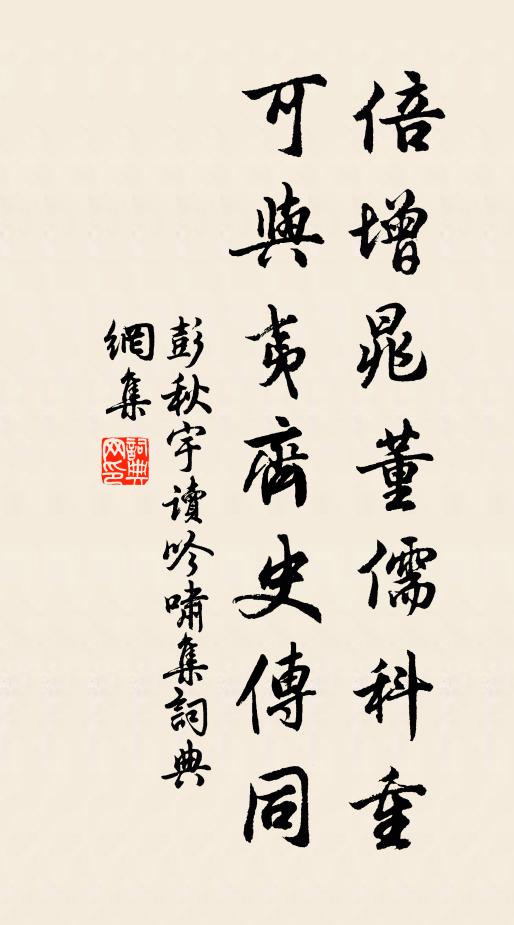 倍增晁董儒科重
可與夷齊史傳同
彭秋宇讀吟嘯集詞典
網集
詞典
网印